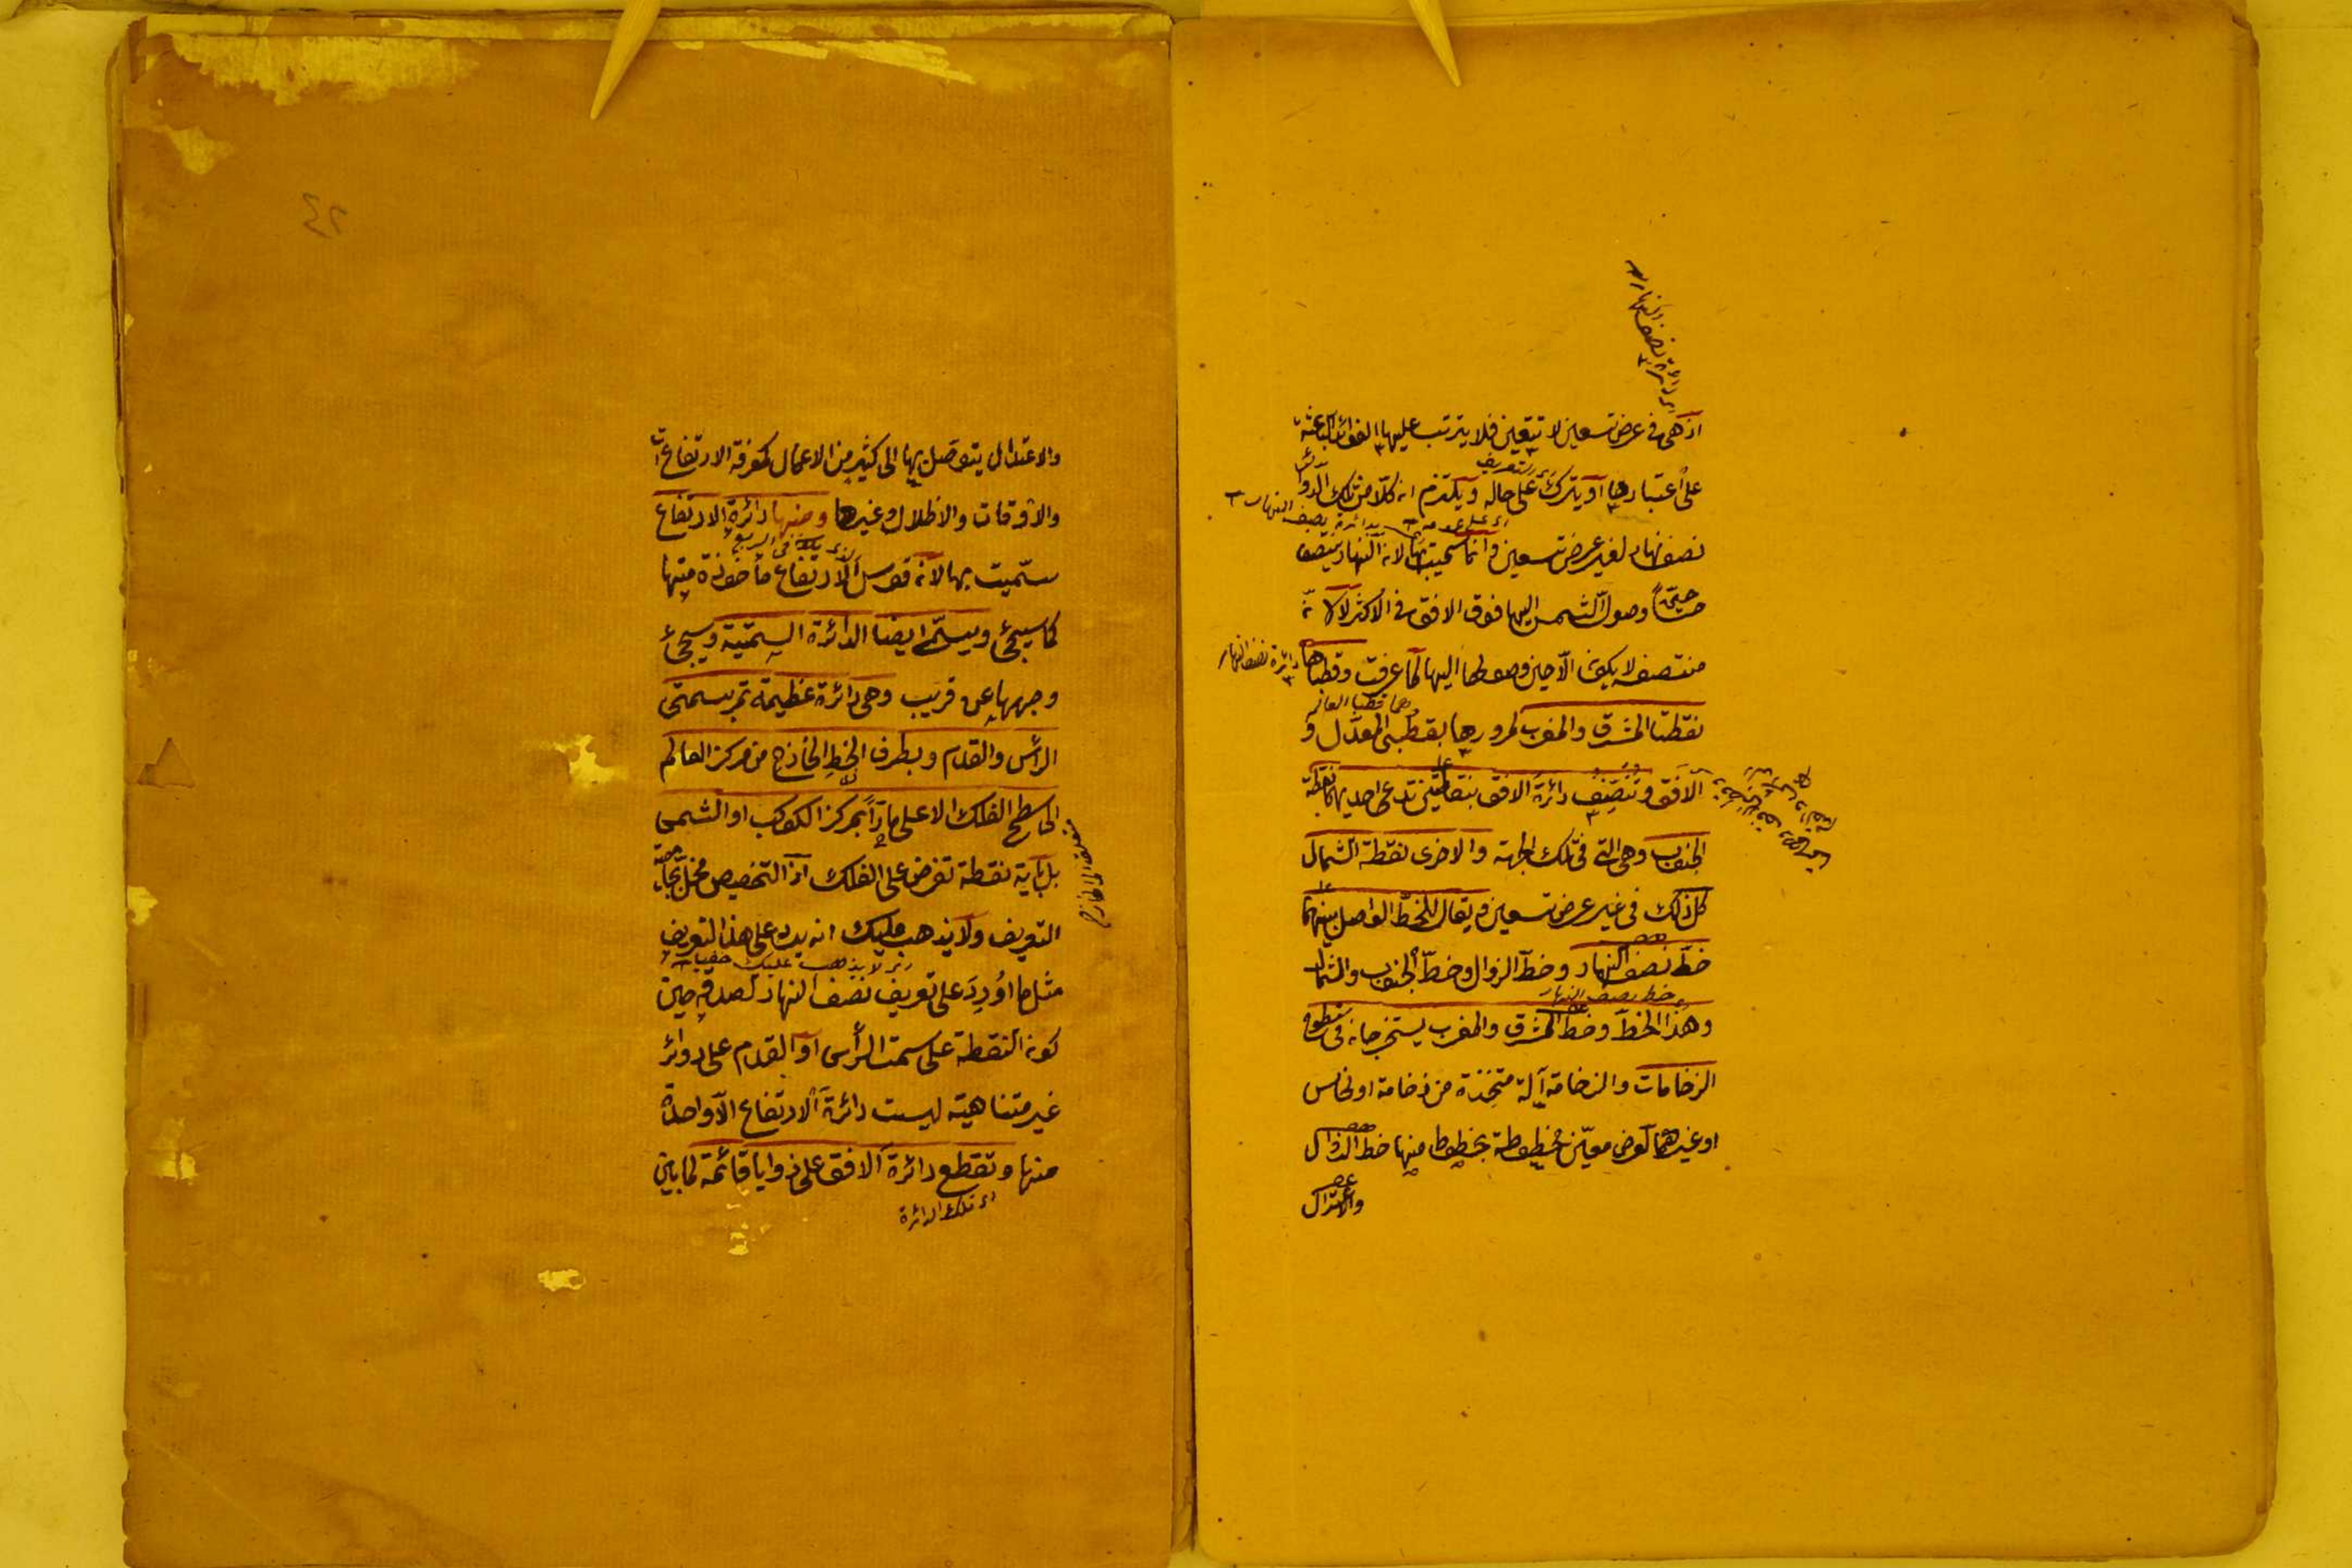 اذ هى فى عرض تسعين لا تتعين فلا يترتب عليها الفوائد الباعثة
على اعتبارها او يترك على حاله ويلتزم ان كلا من تلك الدوائر
نصف نهار لغير عرض تسعين وانما سميت بها لان النهار ينتصف
وصول الشمس اليها فوق الافق فى الاكثر
منتصفه لا يكون الا حين وصولها اليها كما عرفت وقطباها
نقطتا المشرق والمغرب لمرورها بقطبى المعدل و
الافق وتنصف دائرة الافق بنقطتين تدعى احديهما نقطة
الجنوب وهى التى فى تلك الجهة والاخرى نقطة الشمال
كل ذلك فى غير عرض تسعين ويقال للخط الواصل بينهما
خط نصف النهار وخط الزوال وخط الجنوب والشمال
وهذا الخط وخط المشرق والمغرب يستخرجان فى سطوح
الرخامات والرخامة آلة متخذة من رخامة او نحاس
او غيرهما لعرض معين مخطوطة بخطوط منها خط الزوال
والاعتدال
اى دائرة نصف النهار
التعريف
بدائرة نصف النهار
دائرة نصف النهار
وهما قطبا العالم
خط نصف النهار
٤٢
والاعتدال يتوصل بها الى كثير من الاعمال كمعرفة الارتفاعات
والاوقات والاظلال وغيرها ومنها دائرة الارتفاع
سميت بها لان قوس الارتفاع ماخوذة منها
كما سيجئ ويسمى ايضا الدائرة السمتية وسيجئ
وجهها عن قريب وهى دائرة عظيمة تمر بسمتى
الرأس والقدم وبطرف الخط الخارج من مركز العالم
الى سطح الفلك الاعلى مارا بمركز الكوكب او الشمس
بل باية نقطة تفرض على الفلك اذ التخصيص مخل بجامعية
التعريف ولا يذهب عليك انه يرد على هذا التعريف
مثل ما اورد على تعريف نصف النهار لصدقه حين
كون النقطة على سمت الرأس او القدم على دوائر
غير متناهية ليست دائرة الارتفاع الا واحدة
منها وتقطع دائرة الافق على زوايا قائمة لما بين
اى لا يذهب عليك
اى تلك الدائرة